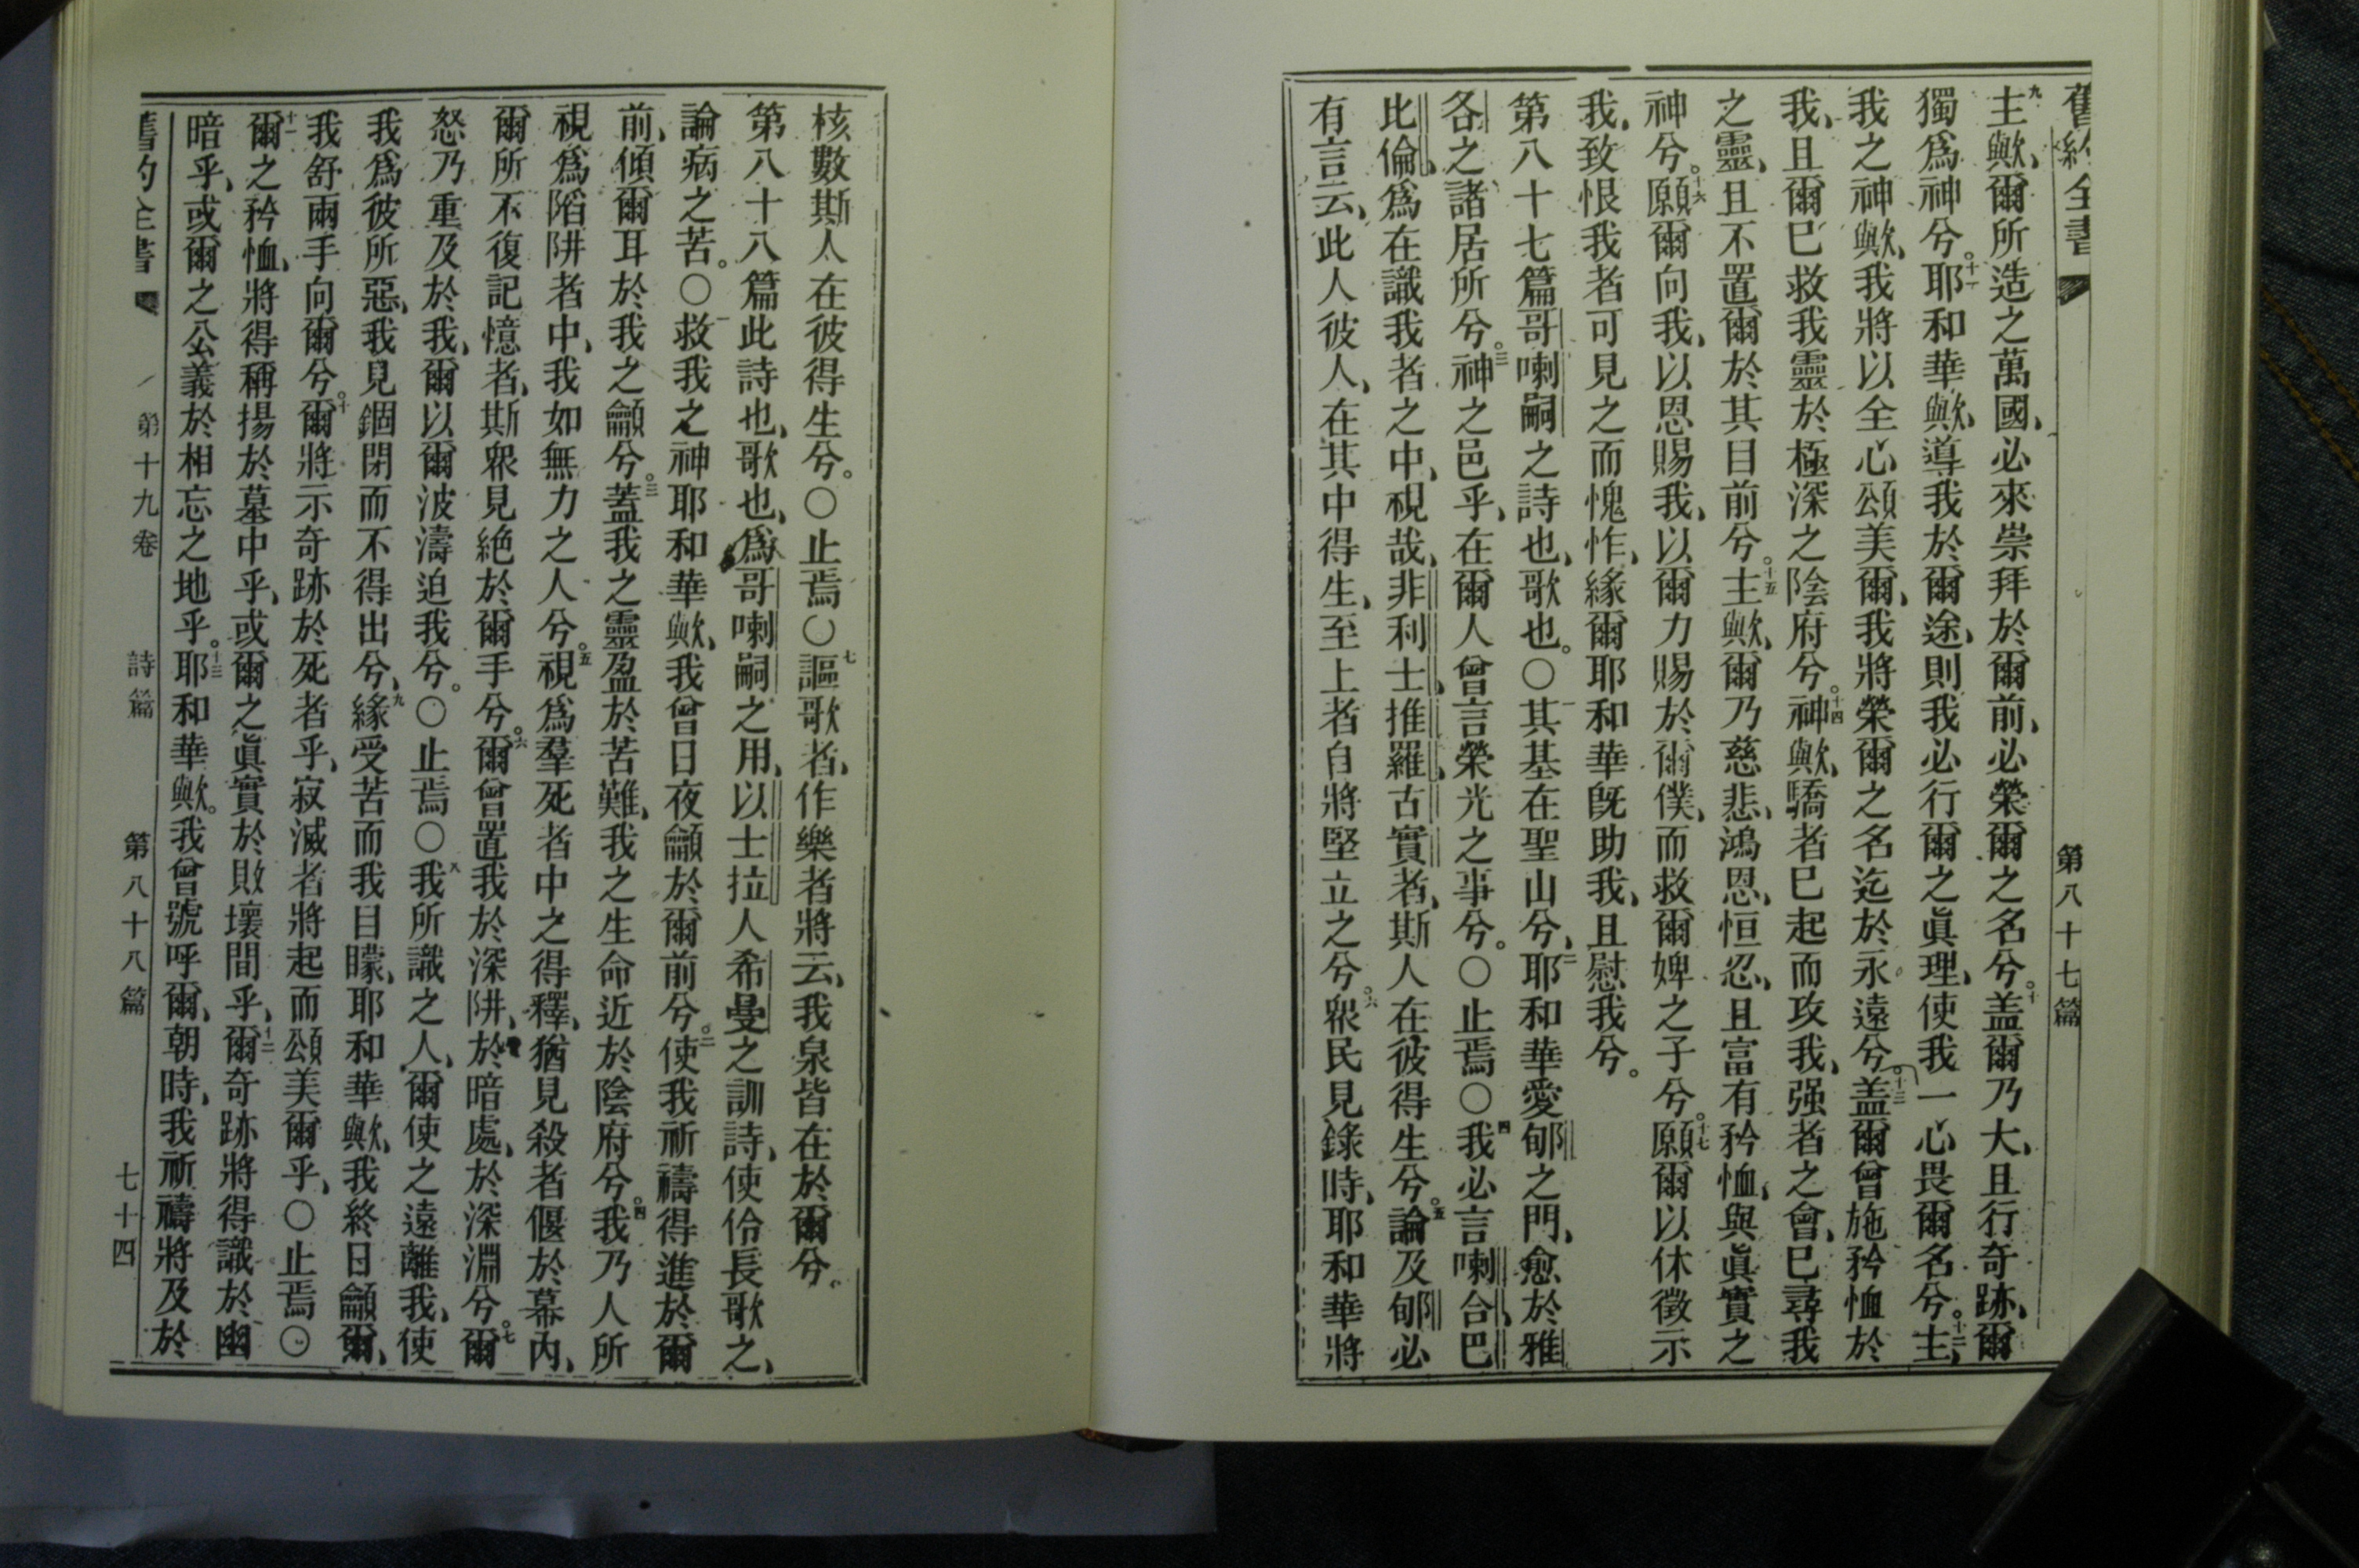 舊約全書
第八十七篇
九主歟、爾所造之萬國、必來崇拜於爾前、必榮爾之名兮。十盖爾乃大、且行奇跡、爾
獨爲神兮。十一耶和華歟、導我於爾途、則我必行爾之眞理、使我一心畏爾名兮。十二主、
我之神歟、我將以全心頌美爾、我將榮爾之名迄於永遠兮。十三盖爾曾施矜恤於
我、且爾已救我靈於極深之陰府兮。十四神歟、驕者已起而攻我、强者之會、已尋我
之靈、且不置爾於其目前兮。十五主歟、爾乃慈悲、鴻恩、恒忍、且富有矜恤、與眞實之
神兮。十六願爾向我、以恩賜我、以爾力賜於爾僕、而救爾婢之子兮。十七願爾以休徵示
我、致恨我者可見之而愧怍、緣爾耶和華旣助我、且慰我兮。
第八十七篇哥喇嗣之詩也、歌也。○一其基在聖山兮、二耶和華愛郇之門、愈於雅
各之諸居所兮。三神之邑乎、在爾人曾言榮光之事兮。○止焉○四我必言喇合巴
比倫、爲在識我者之中、視哉、非利士、推羅、古實者、斯人在彼得生兮。五論及郇必
有言云、此人彼人、在其中得生、至上者自將堅立之兮。六衆民見錄時、耶和華將
核數斯人在彼得生兮。○止焉○七謳歌者、作樂者將云、我泉皆在於爾兮。
第八十八篇此詩也、歌也、爲哥喇嗣之用、以士拉人希曼之訓詩、使伶長歌之、
論病之苦。○一救我之神耶和華歟、我曾日夜籲於爾前兮。二使我祈禱得進於爾
前、傾爾耳於我之籲兮。三蓋我之靈盈於苦難、我之生命近於陰府兮。四我乃人所
視爲陷阱者中、我如無力之人兮。五視爲羣死者中之得釋、猶見殺者偃於墓內、
爾所不復記憶者、斯衆見絶於爾手兮。六爾曾置我於深阱、於暗處、於深淵兮。七爾
怒乃重及於我、爾以爾波濤迫我兮。○止焉○八我所識之人、爾使之遠離我、使
我爲彼所惡、我見錮閉而不得出兮、九緣受苦而我目矇、耶和華歟、我終日籲爾、
我舒兩手向爾兮。十爾將示奇跡於死者乎、寂滅者將起而頌美爾乎、○止焉○
十一爾之矜恤、將得稱揚於墓中乎、或爾之眞實於敗壞間乎、十二爾奇跡將得識於幽
暗乎、或爾之公義於相忘之地乎。十三耶和華歟。我曾號呼爾、朝時、我祈禱將及於
舊約全書
第十九卷
詩篇
第八十八篇
七十四